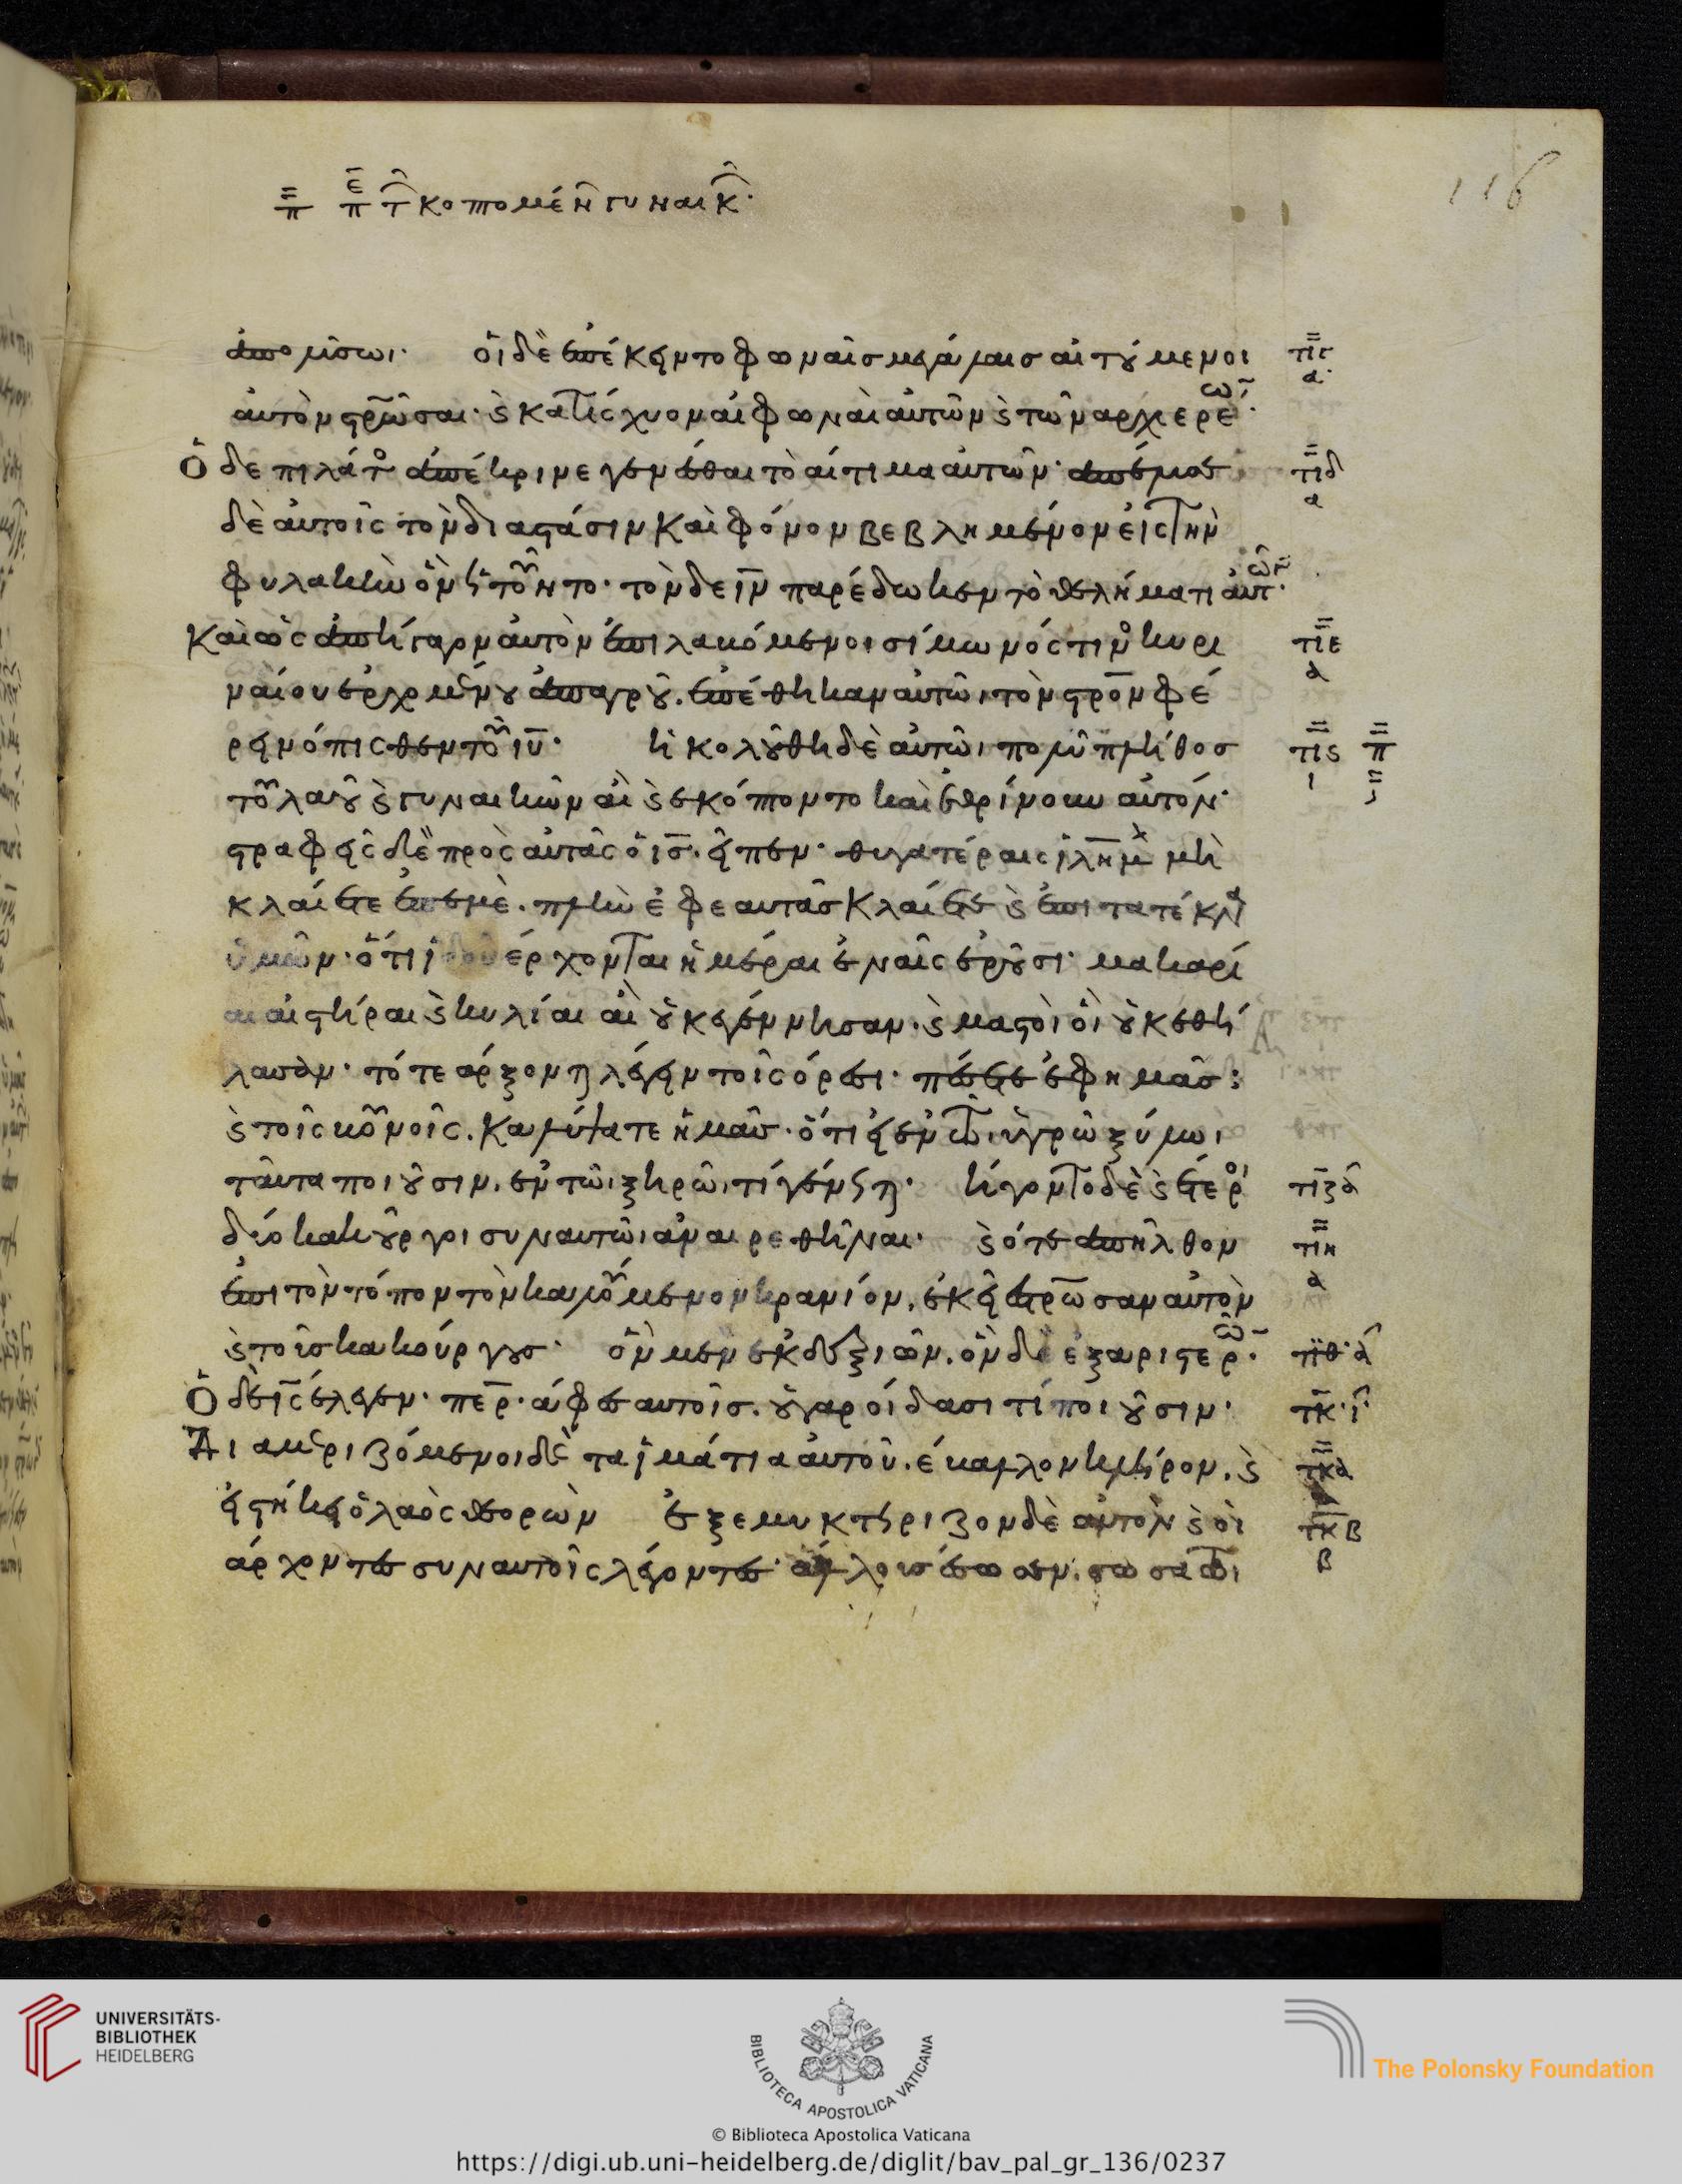 π̿ πε τ̑ κοπομέν γυναικ̑.
116
ἀπολύσω· οἱ δὲ ἐπέκειντο φωναῖσ μεγάλαισ αἰτούμενοι τιγ α
αὐτὸν σρ̅ῶσαι· καὶ κατίσχυον αἱ φωναὶ αὐτῶν καὶ τῶν ἀρχιερέων·
Ὁ δὲ πιλάτος ἀπέκρινε γενέσθαι τὸ αἴτημα αὐτῶν· ἀπέλυσε τιδ α
δὲ αὐτοῖς τὸν διαστάσιν καὶ φόνον βεβλημένον εἰς τὴν
φυλακὴν ὃν ἠτοῦντο· τὸν δὲ ιν̅ παρέδωκεν τὸ θελήματι αὐτῶν·
Καὶ ὡς ἀπήγαγον αὐτὸν ἐπιλαβόμενοι σίμωνός τινος κυρι τιε α
ναίου ἐρχομένου ἀπαγροῦ. ἐπέθηκαν αὐτῶ τὸν σρ̅ον φέ
ρειν όπισθεν τοῦ ιυ̅· ἠκολούθη δὲ αὐτῶ πολὺ πλῆθοσ τις ι π̿
τοῦ λαοῦ καὶ γυναικῶν αἳ καὶ ἐκόπτοντο καὶ ἐθρήνουν αὐτόν·
στραφεὶς δὲ πρὸς αὐτὰς ὁ ις̅. εἶπεν· θυγατέραις ιλημ̅ μὴ
κλαίετε ἐπ ἐμὲ. πλὴν ἐφ εαυτὰσ κλαίετε καὶ ἐπι τα τέκνα
ὑμῶν· ὅτι ἰδοὺ έρχονται ἡμέραι ἐν αἷς ἐροῦσι· μακάρι
αι αἱ στείραι καὶ κοιλίαι αἳ οὐκ ἐγέννησαν. καὶ μαστοὶ οἳ οὐκ ἐθή
λασαν· τότε άρξονται λέγειν τοῖς όρεσι· πέσετε ἐφ ημᾶσ:
καὶ τοῖς βουνοῖς. καλύψατε ἡμᾶσ· ὅτι εἰ ἐν τῶ ὑγρῶ ξύλω
ταῦτα ποιοῦσιν. ἐν τῶ ξηρῶ τί γένηται· ήγοντο δὲ καὶ έτεροι τιζ α
δύο κακοῦργοι συν αυτῶ ἀναιρεθῆναι· καὶ ότε ἀπῆλθον τιη α
ἐπι τὸν τόπον τὸν καλούμενον κρανίον. ἐκεῖ ἐσρ̅ωσαν αὐτὸν
καὶ τοῖσ κακούργοισ· ὃν μεν ἐκ δεξιῶν. ὃν δὲ ἐξ αριστερῶν· τιθ α
Ὁ δὲ ις̅ έλεγεν· περ̅. ἄφεσ αυτοῖσ. οὐ γὰρ οίδασι τί ποιοῦσιν· τκ ι
Διαμεριζόμενοι δὲ τα ἱμάτια αὐτοῦ. έβαλλον κλήρον. καὶ τκα
εἱστήκει ὁ λαὸς θεορὼν ἐξεμυκτήριζον δὲ αὐτὸν καὶ οἱ τκβ β
άρχοντεσ συν αυτοῖς λέγοντεσ· άλλουσ έσωσεν.
UNIVERSITÄTS-
BIBLIOTHEK
HEIDELBERG
BIBLIOTECA APOSTOLICA VATICANA
The Polonsky Foundation
© Biblioteca Apostolica Vaticana
https://digi.ub.uni-heidelberg.de/diglit/bav_pal_gr_136/0237